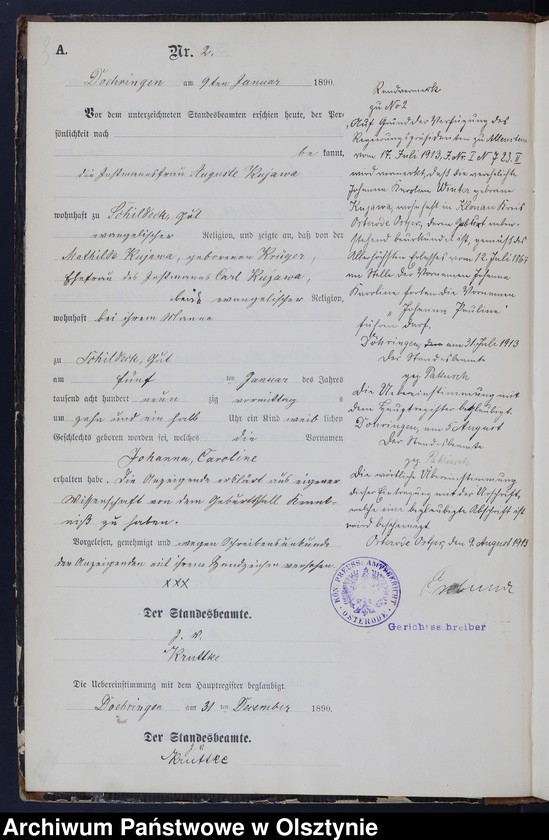 A.
Nr. 2.
Doehringen am 9ten Januar 1890.
Vor dem unterzeichneten Standesbeamten erschien heute, der Per-
sönlichkeit nach
be kannt,
die Instmannsfrau Auguste Kujawa
wohnhaft zu Schildeck, Gut
evangelischer Religion, und zeigte an, daß von der
Mathilde Kujawa, geborenen Krüger,
Ehefrau des Instmannes Carl Kujawa,
beide evangelischer Religion,
wohnhaft bei ihrem Manne
zu Schildeck, Gut
am fünf ten Januar des Jahres
tausend acht hundert neun zig vormittag s
um zehn und ein halb Uhr ein Kind weib lichen
Geschlechts geboren worden sei, welches die Vornamen
Johanna, Caroline
erhalten habe. Die Anzeigende erklärt aus eigener
Wissenschaft von dem Geburtsfall Kennt-
niß zu haben.
Vorgelesen, genehmigt und wegen Schreibensunkunde
der Anzeigenden mit ihrem Handzeichen versehen.
XXX
Der Standesbeamte.
J. V.
Kruttke
Die Uebereinstimmung mit dem Hauptregister beglaubigt.
Doehringen am 31 ten Dezember 1890.
Der Standesbeamte.
J. V.
Kruttke
Randvermerk
zu No 2
"Auf Grund der Verfügung des
Regierungspräsidenten zu Allenstein
vom 17. Juli 1913, J. Nr. I N 7 23. II
wird vermerkt, daß die verehelichte
Johanna Karoline Winter geborene
Kujawa, wohnhaft in Klonau Kreis
Osterode Ostpr, deren Geburt neben-
stehend beurkundet ist, gemäß des
Allerhöchsten Erlasses vom 12. Juli 1867
an Stelle der Vornamen Johanna
Karoline fortan die Vornamen
"Johanna Pauline"
führen darf.
Döhringen, den 31. Juli 1913
Der Standesbeamte
gez
Die Uebereinstimmung mit
dem Hauptregister beglaubigt.
Döhringen, am 5 August
Der Standesbeamte
gez
Die wörtliche Übereinstimmung
dieser Eintragung mit der Urschrift,
welche eine beglaubigte Abschrift ist
wird bescheinigt
Osterode Ostpr, den 9. August 1913
KÖN. PREUSS. AMTSGERICHT
OSTERODE
Gerichtsschreiber
Archiwum Państwowe w Olsztynie